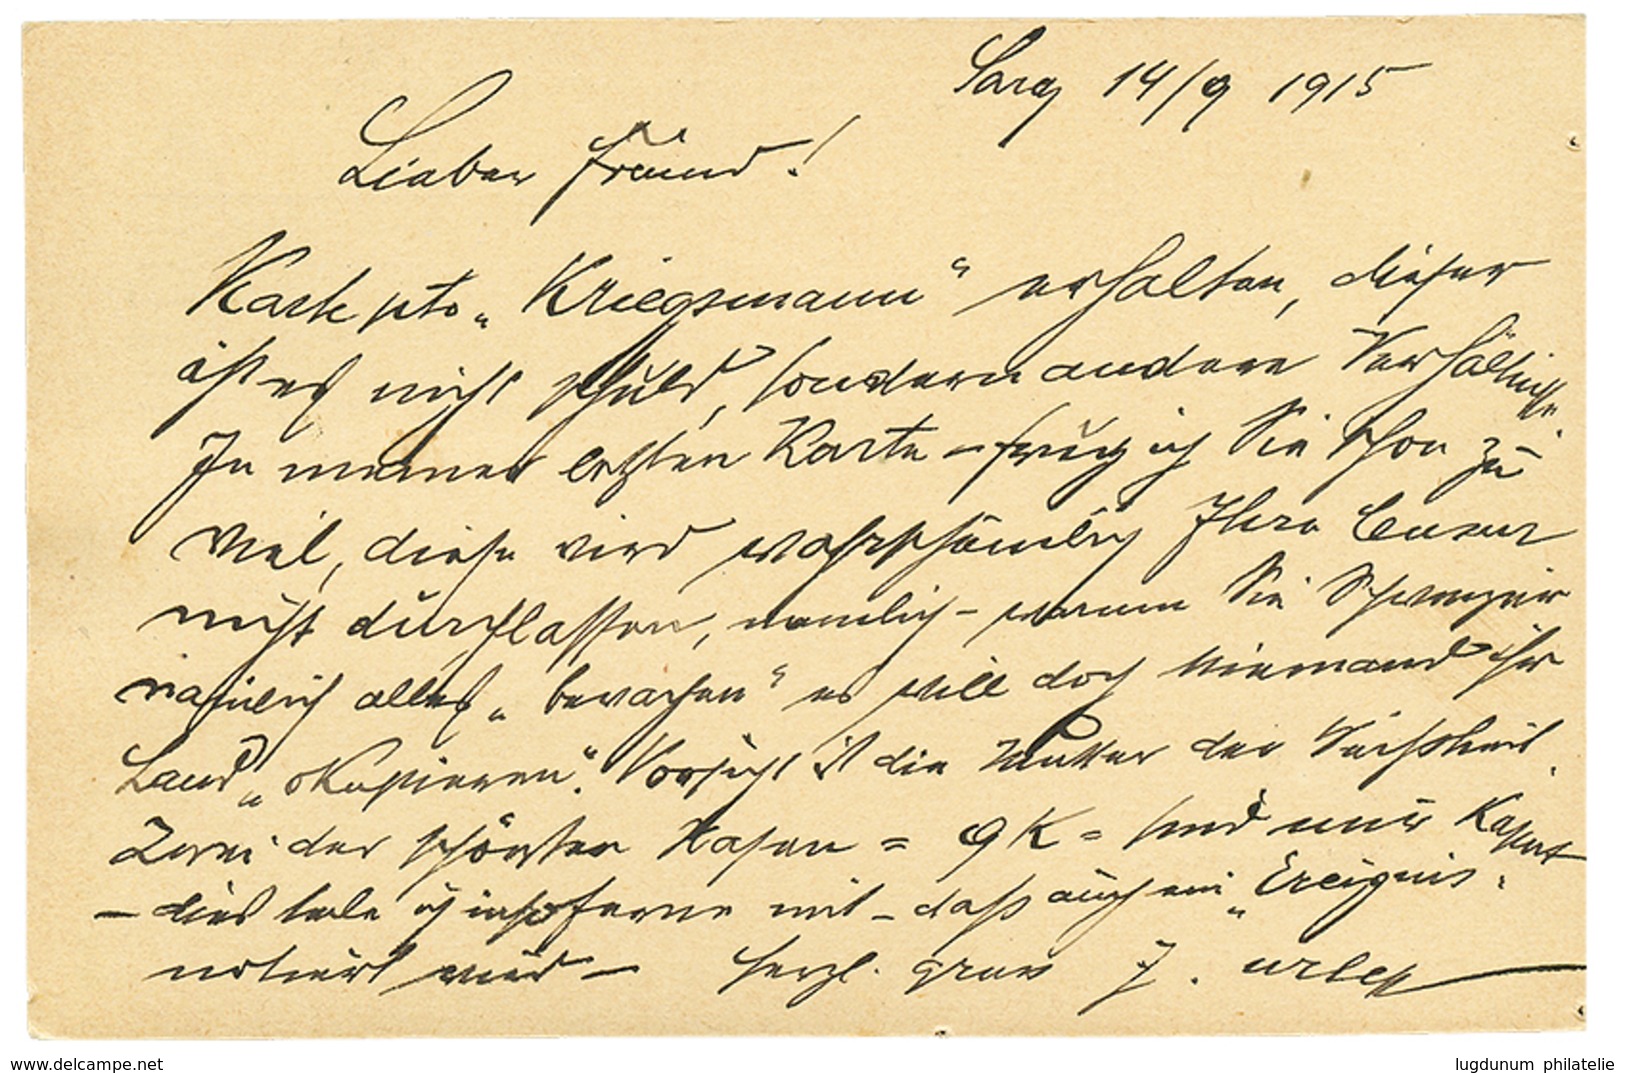 14/9 1915
Lieber Freund!
Karte pto „Kriegsmann“ erhalten, dieser
ist es nicht schuld, sondern andere Verhältnisse.
In meiner letzten Karte – frug ich Sie schon zu
viel, diese wird wahrscheinlich Ihre Censur
nicht durchlassen, nämlich – warum Sie Schweizer
natürlich alles „bewachen“ es will doch Niemand ihr
Land „okupieren“. Vorsicht ist die Mutter der Weisheit.
Zwei der schönsten Hasen = 9K = sind mir Kaput
– dies teile ich insoferne mit – daß auch ein „Ereignis.
notiert wird – herzl. gruss J.
delcampe.net
lugdunum philatelie